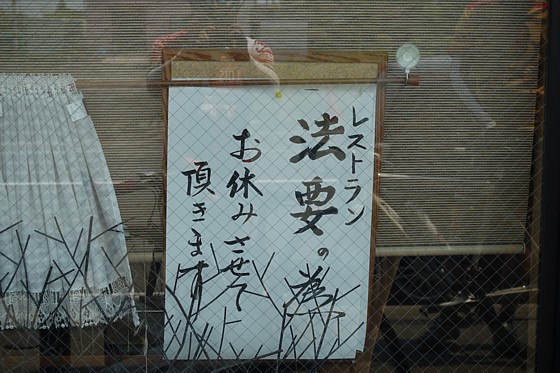 レストラン
法要の為
お休みさせて
頂きます